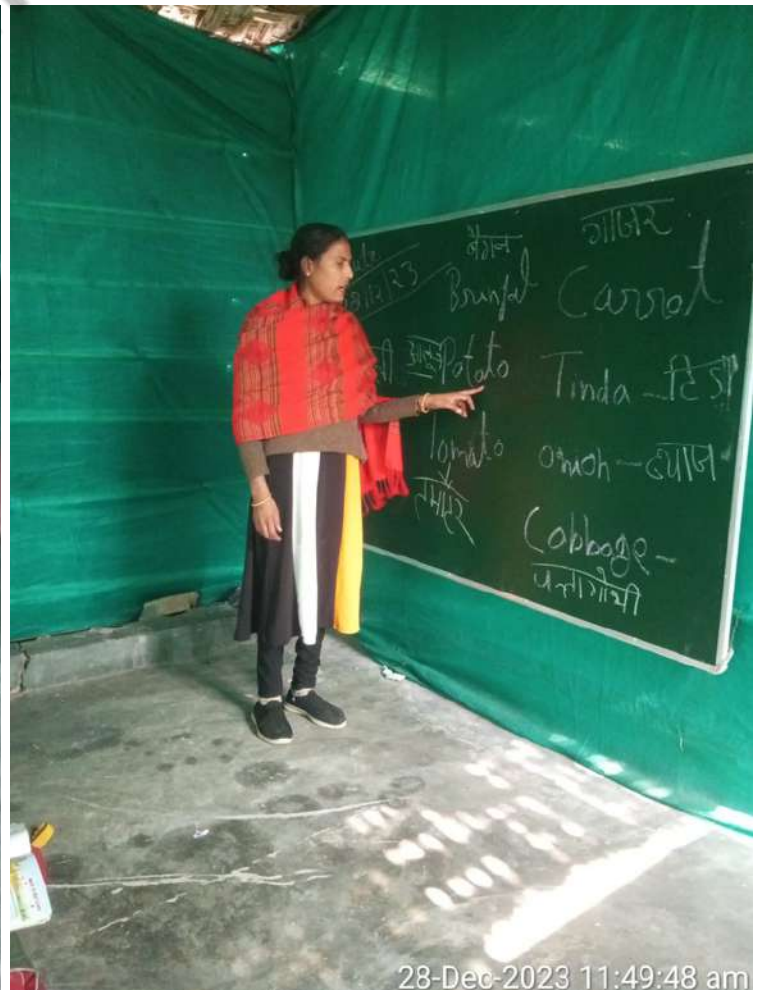 बैगन
गाजर
Brinjal
Carrot
आलू Potato
Tinda - टिंडा
Tomato
टमाटर
onion - प्याज
Cabbage -
पत्तागोभी
28-Dec-2023 11:49:48 am